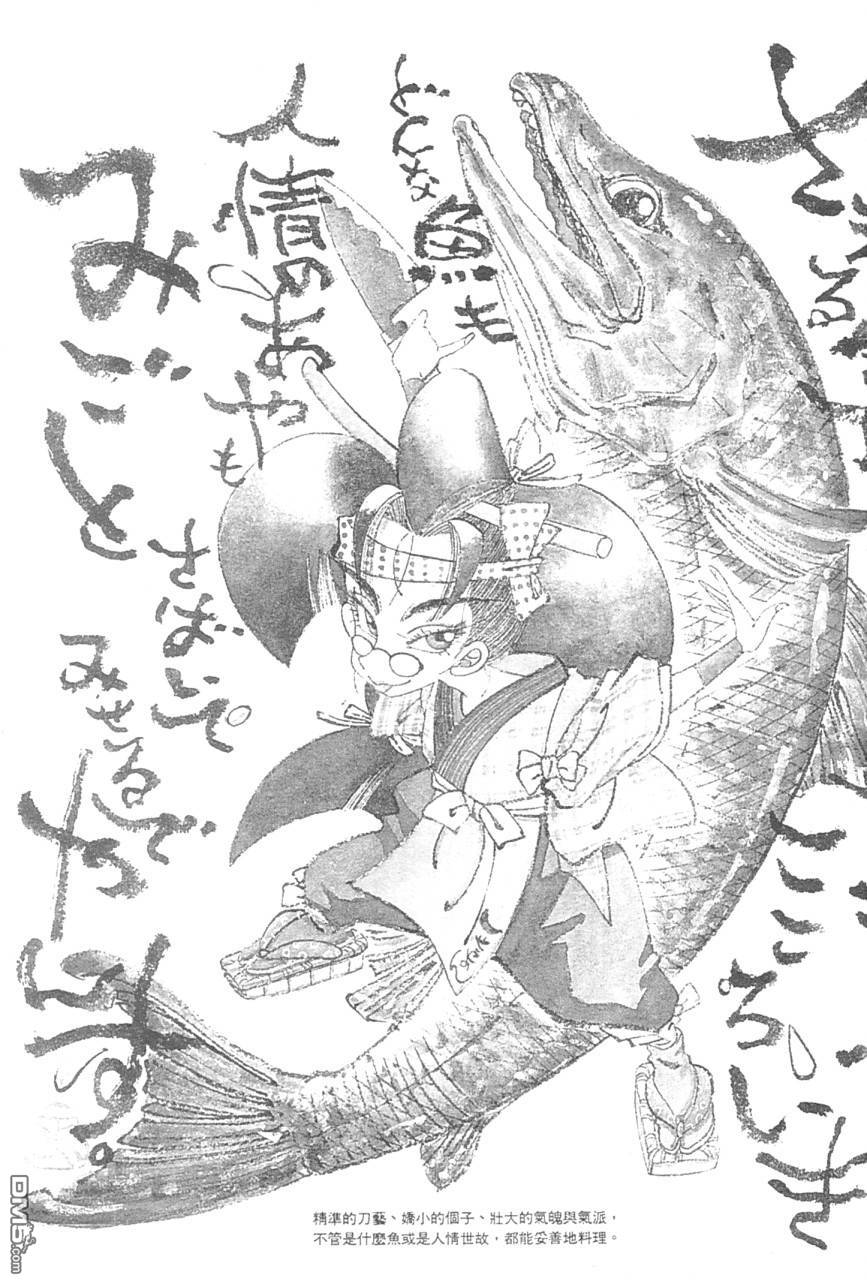 こころいき
どんな
魚も
人情のあやも
みごと
さばいて
みせるで
やんす。
精準的刀藝、嬌小的個子、壯大的氣魄與氣派，
不管是什麼魚或是人情世故，都能妥善地料理。
DM5.com